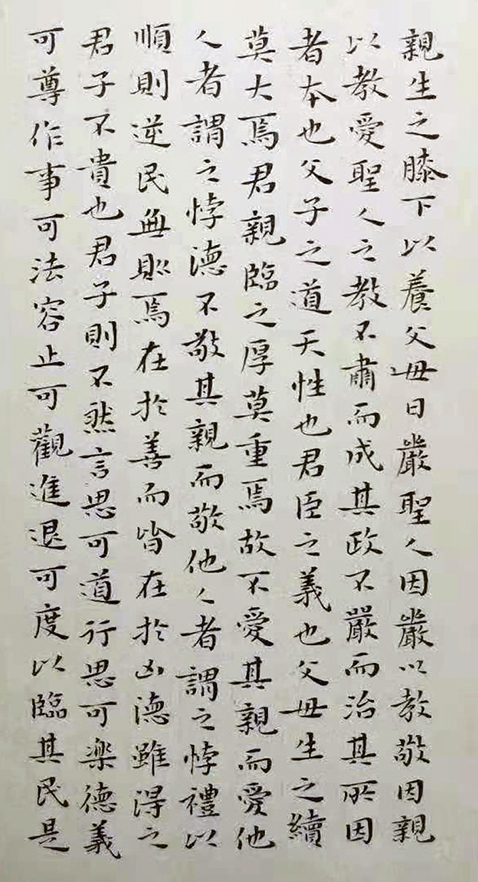 親生之膝下以養父母日嚴聖人因嚴以教敬因親
以教愛聖人之教不肅而成其政不嚴而治其所因
者本也父子之道天性也君臣之義也父母生之續
莫大焉君親臨之厚莫重焉故不愛其親而愛他
人者謂之悖德不敬其親而敬他人者謂之悖禮以
順則逆民無則焉不在於善而皆在於凶德雖得之
君子不貴也君子則不然言思可道行思可樂德義
可尊作事可法容止可觀進退可度以臨其民是